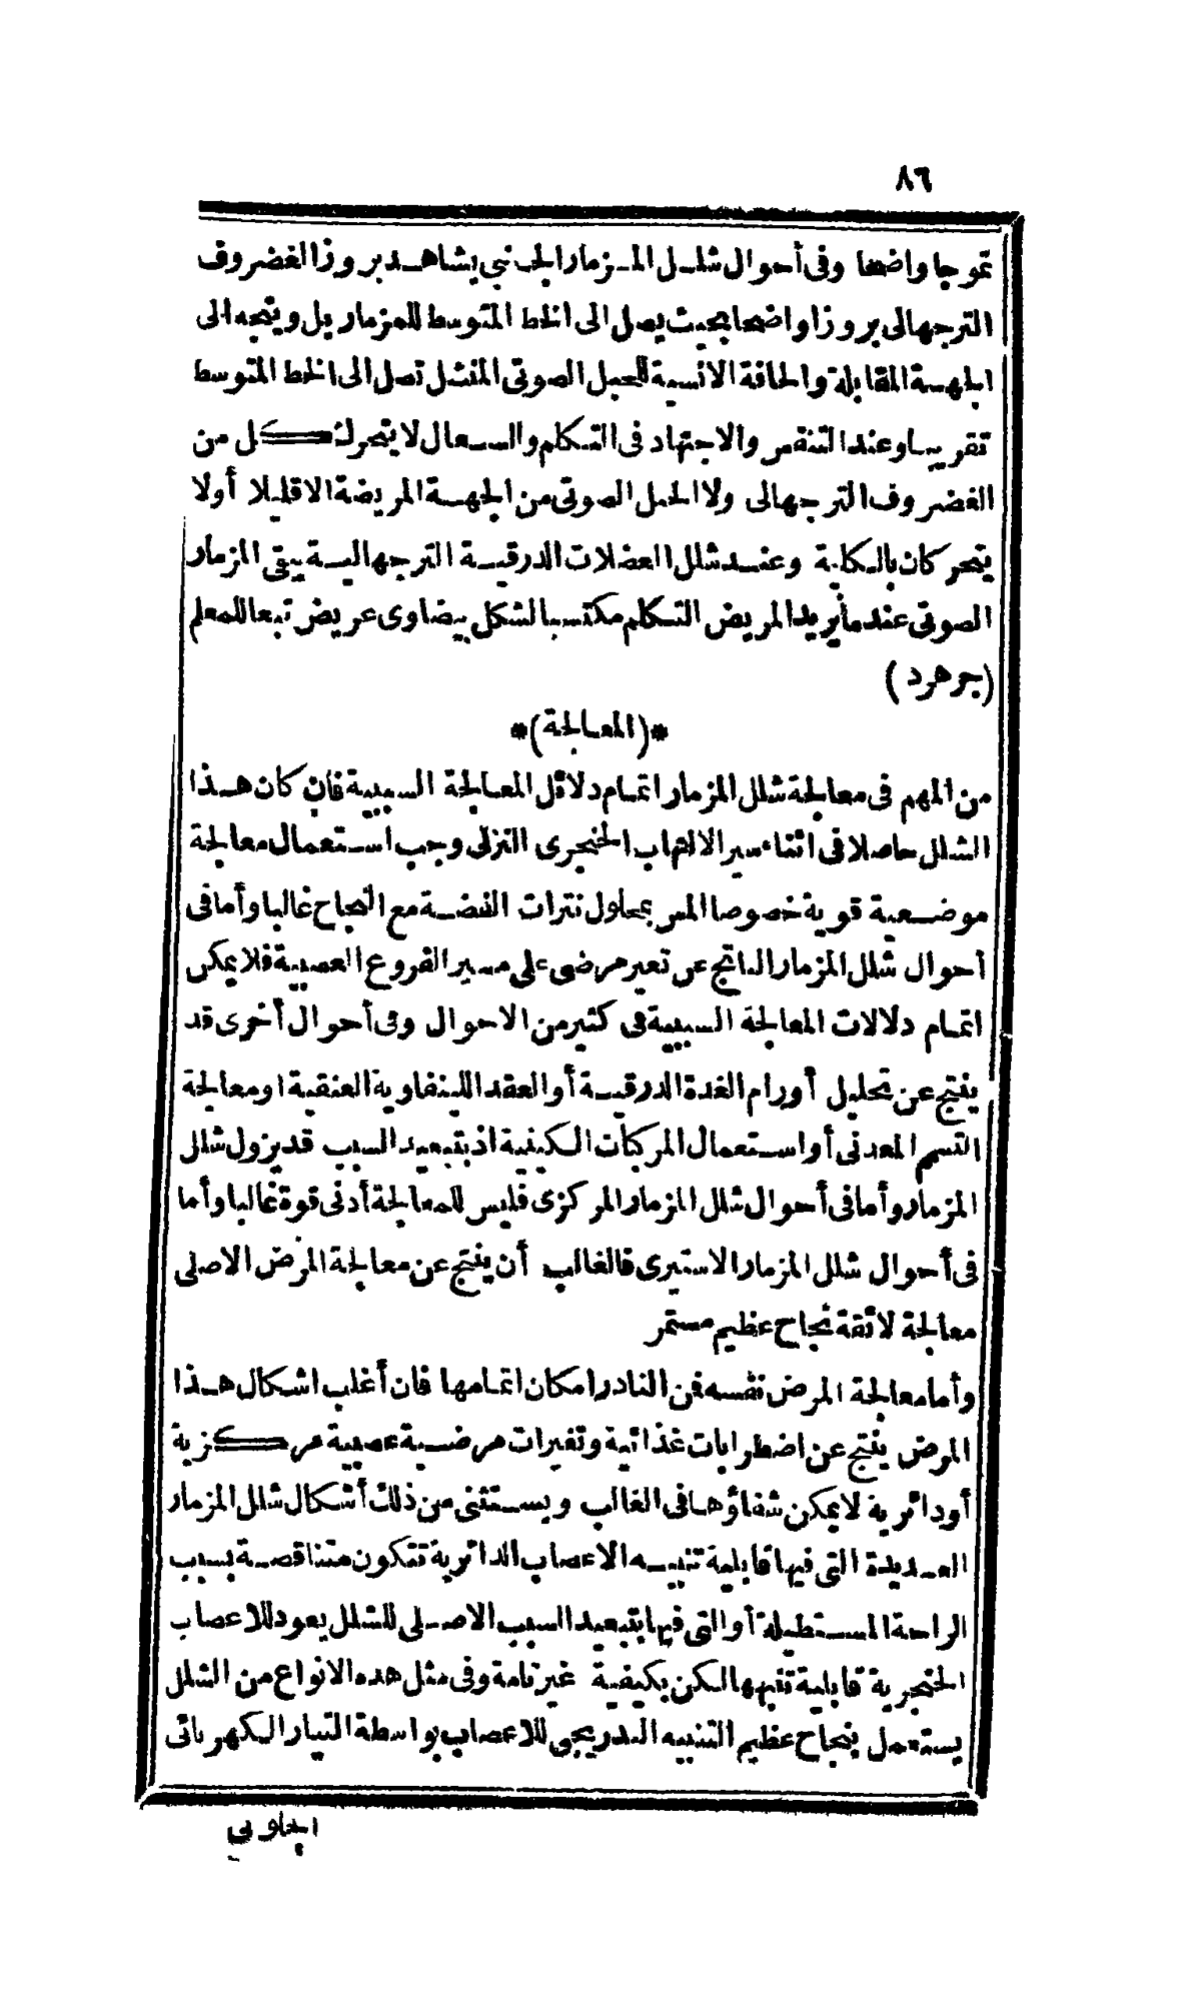 ٨٦
تموجا واضحا وفى أحوال شلل المزمار الجانبى يشاهد بروز الغضروف
الترجهالى بروزا واضحا بحيث يصل الى الخط المتوسط للمزمار بل ويتجه الى
الجهة المقابلة والحافة الانسية للحبل الصوتى المنشل تصل الى الخط المتوسط
تقريبا وعند التنفس والاجتهاد فى التكلم والسعال لا يتحرك كل من
الغضروف الترجهالى ولا الحبل الصوتى من الجهة المريضة الا قليلا أولا
يتحركان بالكلية وعند شلل العضلات الدرقية الترجهالية يبقى المزمار
الصوتى عندما يريد المريض التكلم مكتسبا لشكل بيضاوى عريض تبعا للمعلم
(جرهرد)
*(المعالجة)*
من المهم فى معالجة شلل المزمار اتمام دلائل المعالجة السببية فان كان هذا
الشلل حاصلا فى اثناء سير الالتهاب الحنجرى النزلى وجب استعمال معالجة
موضعية قوية خصوصا المس بمحلول نترات الفضة مع النجاح غالبا وأما فى
أحوال شلل المزمار الناتج عن تغير مرضى على مسير الفروع العصبية فلا يمكن
اتمام دلالات المعالجة السببية فى كثير من الاحوال وفى أحوال أخرى قد
ينتج عن تحليل أورام الغدة الدرقية أو العقد اللينفاوية العنقية او معالجة
التسمم المعدنى أو استعمال المركبات الكينية اذ بتبعيد السبب قد يزول شلل
المزمار وأما فى أحوال شلل المزمار المركزى فليس للمعالجة أدنى قوة غالبا وأما
فى أحوال شلل المزمار الاستيرى فالغالب أن ينتج عن معالجة المرض الاصلى
معالجة لائقة نجاح عظيم مستمر
وأما معالجة المرض نفسه فمن النادر امكان اتمامها فان أغلب اشكال هذا
المرض ينتج عن اضطرابات غذائية وتغيرات مرضية عصبية مركزية
أو دائرية لا يمكن شفاؤها فى الغالب ويستثنى من ذلك أشكال شلل المزمار
العديدة التى فيها قابلية تنبيه الاعصاب الدائرية تتكون متناقصة بسبب
الراحة المستطيلة أو التى فيها بتبعيد السبب الاصلى للشلل يعود للاعصاب
الحنجرية قابلية تنبهها لكن بكيفية غير تامة وفى مثل هذه الانواع من الشلل
يستعمل بنجاح عظيم التنبيه التدريجى للاعصاب بواسطة التيار الكهربائى
الجلونى